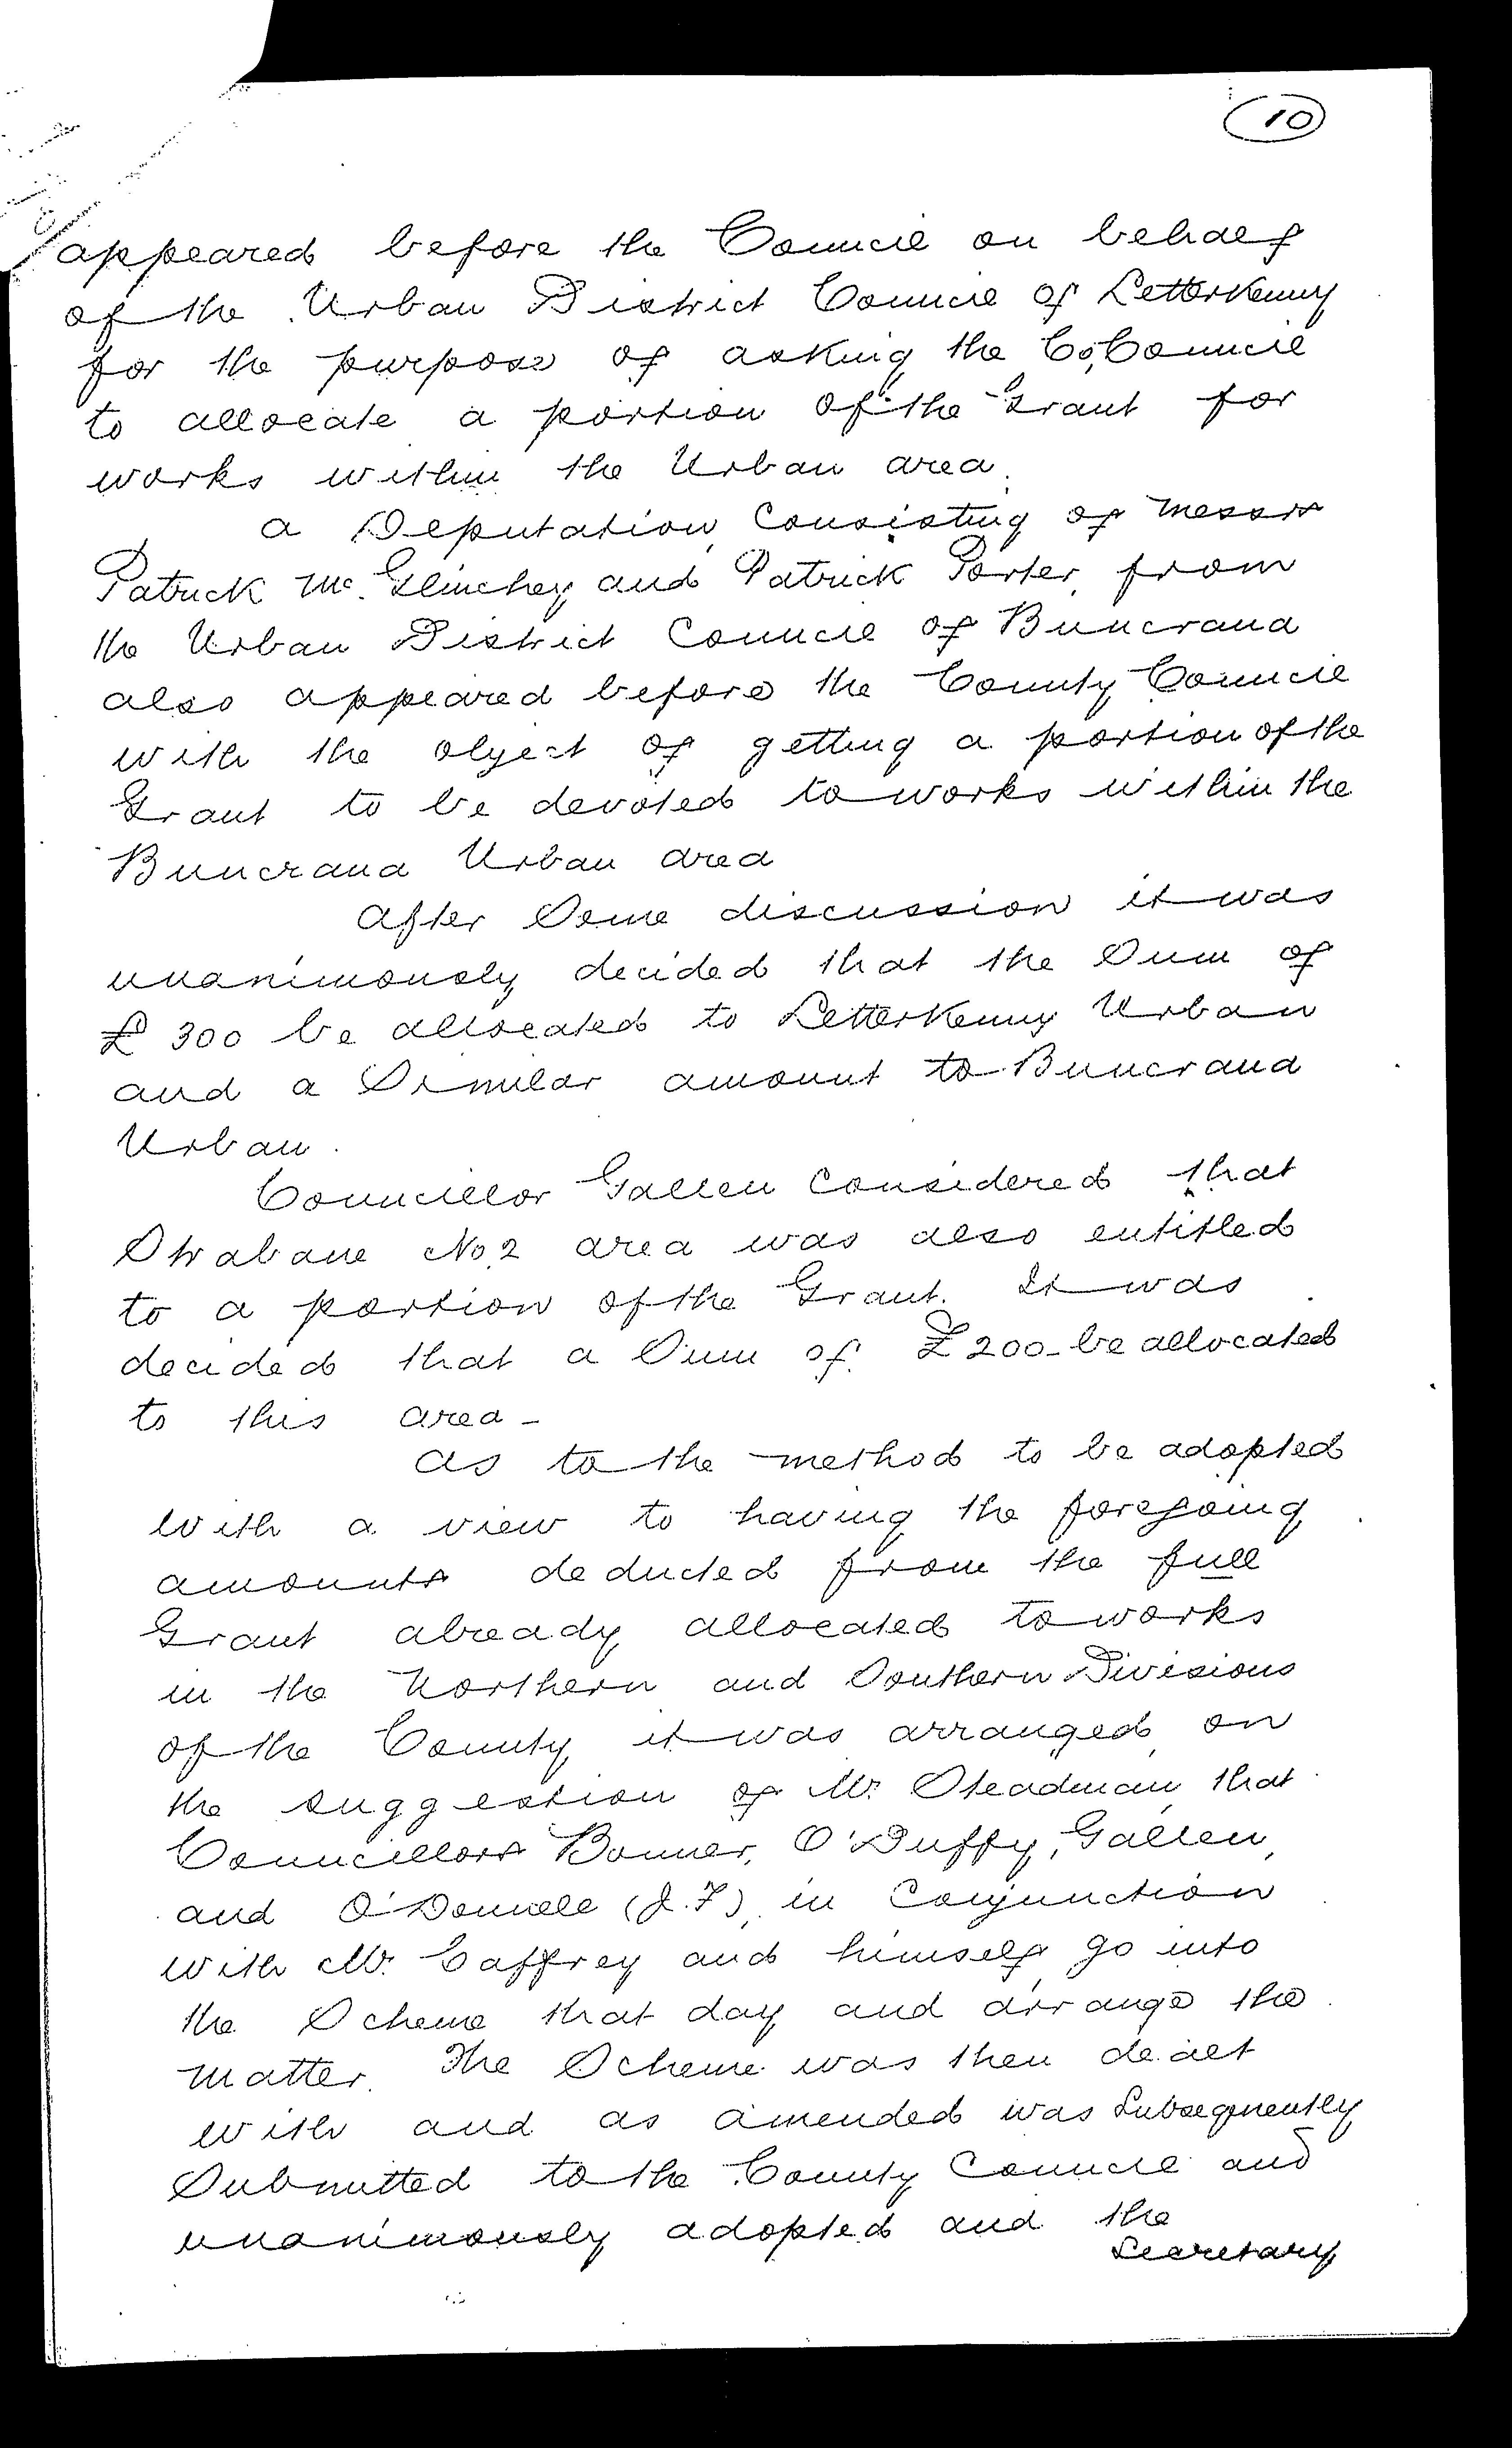 10
appeared before the Council on behalf
of the Urban District Council of Letterkenny
for the purpose of asking the Co. Council
to allocate a portion of the Grant for
works within the Urban area.
a Deputation consisting of Messrs
Patrick Mc. Glinchey and Patrick Porter, from
the Urban District Council of Buncrana
also appeared before the County Council
with the object of getting a portion of the
Grant to be devoted to works within the
Buncrana Urban area
After Some discussion it was
unanimously decided that the Sum of
£ 300 be allocated to Letterkenny Urban
and a Similar amount to Buncrana
Urban.
Councillor Gallen considered that
Strabane No. 2 area was also entitled
to a portion of the Grant. It was
decided that a Sum of £200 - be allocated
to this area -
as to the method to be adopted
with a view to having the foregoing
amounts deducted from the full
Grant already allocated to works
in the Northern and Southern Divisions
of the County it was arranged on
the suggestion of Mr. Steadman, that
Councillors Bonner, O'Duffy, Gallen,
and O'Donnell (J.F), in conjunction
with Mr. Caffrey and himself go into
the Scheme that day and arrange the
matter. The Scheme was then dealt
with and as amended was Subsequently
Submitted to the County Council and
unanimously adopted and the
Secretary